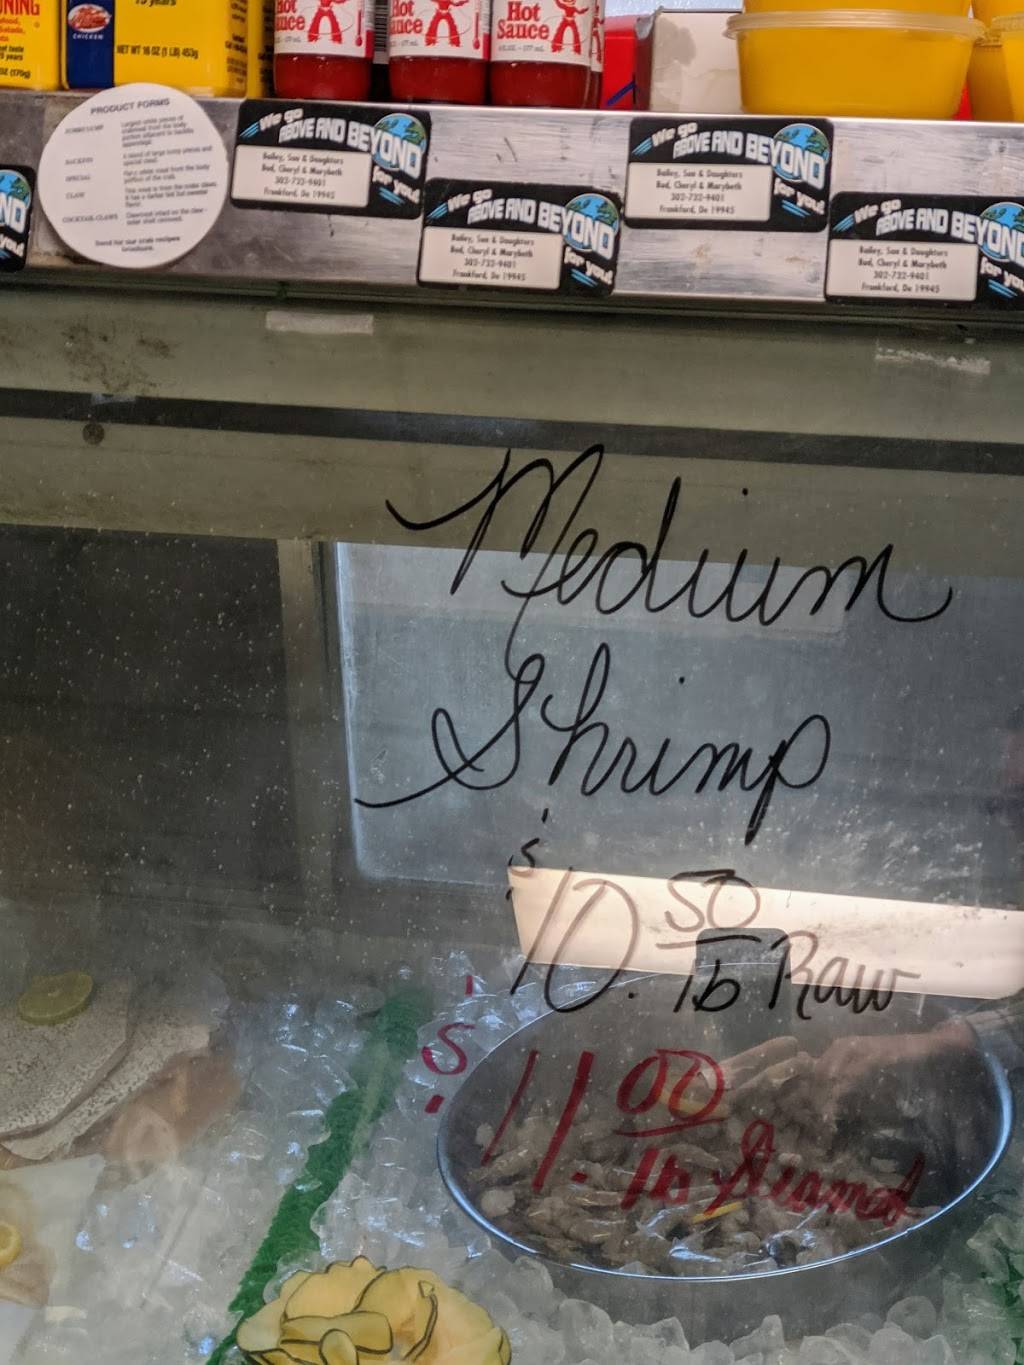 NING
CHICKEN
15 years
NET WT 16 OZ (1 LB) 453g
Hot
Sauce
Hot
Sauce
Hot
Sauce
PRODUCT FORMS
BACKFIN
SPECIAL
CLAW
COCKTAIL CLAWS
Send for our crab recipes
brochure.
We go
ABOVE AND BEYOND
for you!
Bailey, Son & Daughters
Bud, Cheryl & Marybeth
302-732-9401
Frankford, De 19945
We go
ABOVE AND BEYOND
for you!
Bailey, Son & Daughters
Bud, Cheryl & Marybeth
302-732-9401
Frankford, De 19945
We go
ABOVE AND BEYOND
for you!
Bailey, Son & Daughters
Bud, Cheryl & Marybeth
302-732-9401
Frankford, De 19945
We go
ABOVE AND BEYOND
for you
Bailey, Son & Daughters
Bud, Cheryl & Marybeth
302-732-9401
Frankford, De 19945
Medium
Shrimp
$10.50 lb Raw
$11.00 lb Steamed